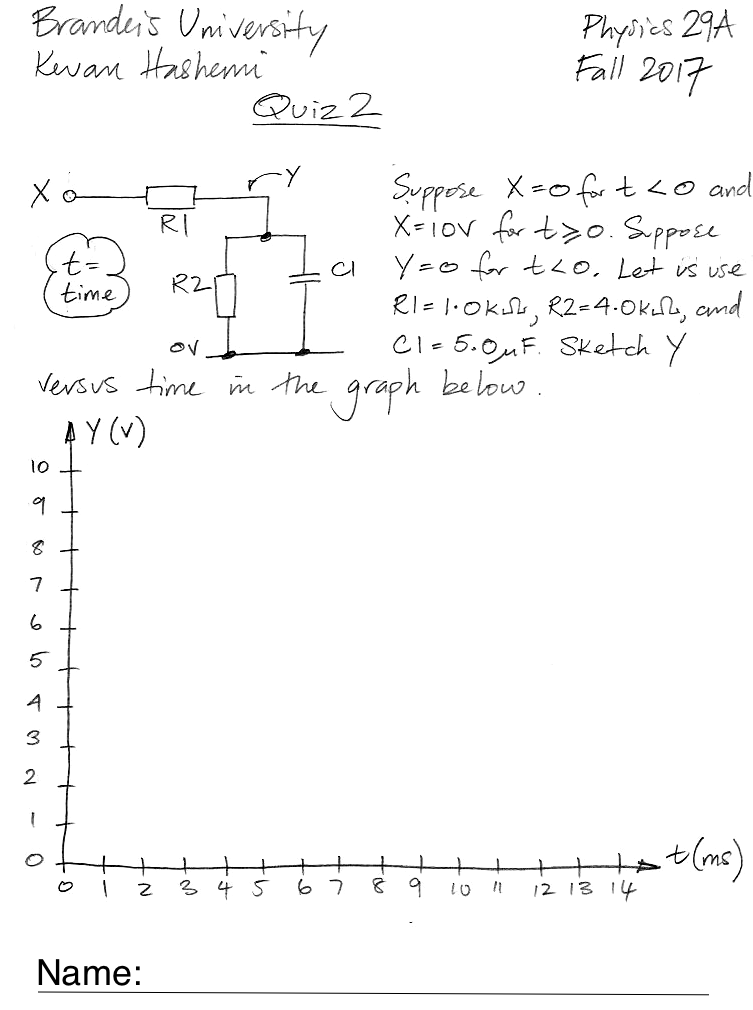 Brandeis University Physics 29A
Kevan Hashemi Fall 2017
Quiz 2
X
R1
Y
t =
time
R2
C1
0V
Suppose X=0 for t<0 and
X=10V for t≥0. Suppose
Y=0 for t<0. Let us use
R1=1.0kΩ, R2=4.0kΩ, and
C1=5.0μF. Sketch Y
versus time in the graph below.
Y (V)
10
9
8
7
6
5
4
3
2
1
0
0 1 2 3 4 5 6 7 8 9 10 11 12 13 14
t (ms)
Name: